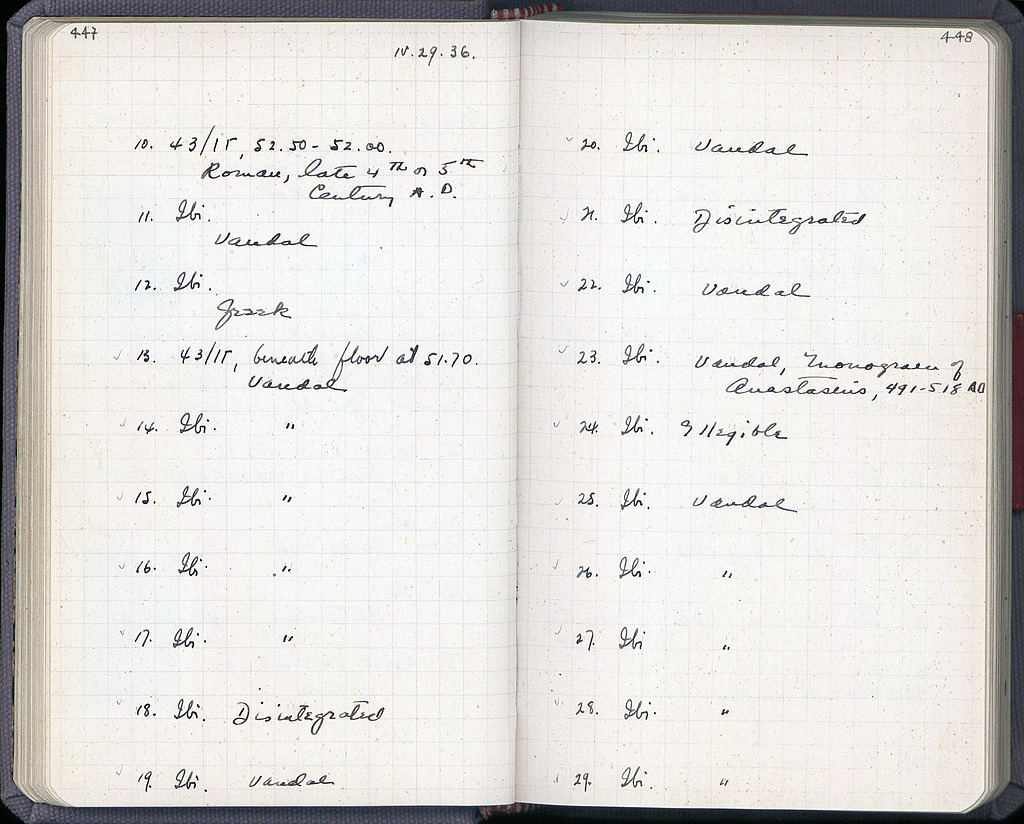 447
IV. 29. 36.
10. 43/IΓ, 52.50 - 52.00.
Roman, late 4TH or 5TH
Century A.D.
11. Ibi.
Vandal
12. Ibi.
Greek
13. 43/IΓ, beneath floor at 51.70.
Vandal
14. Ibi. "
15. Ibi. "
16. Ibi. "
17. Ibi. "
18. Ibi. Disintegrated
19. Ibi. Vandal
448
20. Ibi. Vandal
21. Ibi. Disintegrated
22. Ibi. Vandal
23. Ibi. Vandal, Monogram of
Anastasius, 491-518 AD
24. Ibi. Illegible
25. Ibi. Vandal
26. Ibi. "
27. Ibi "
28. Ibi. "
29. Ibi. "